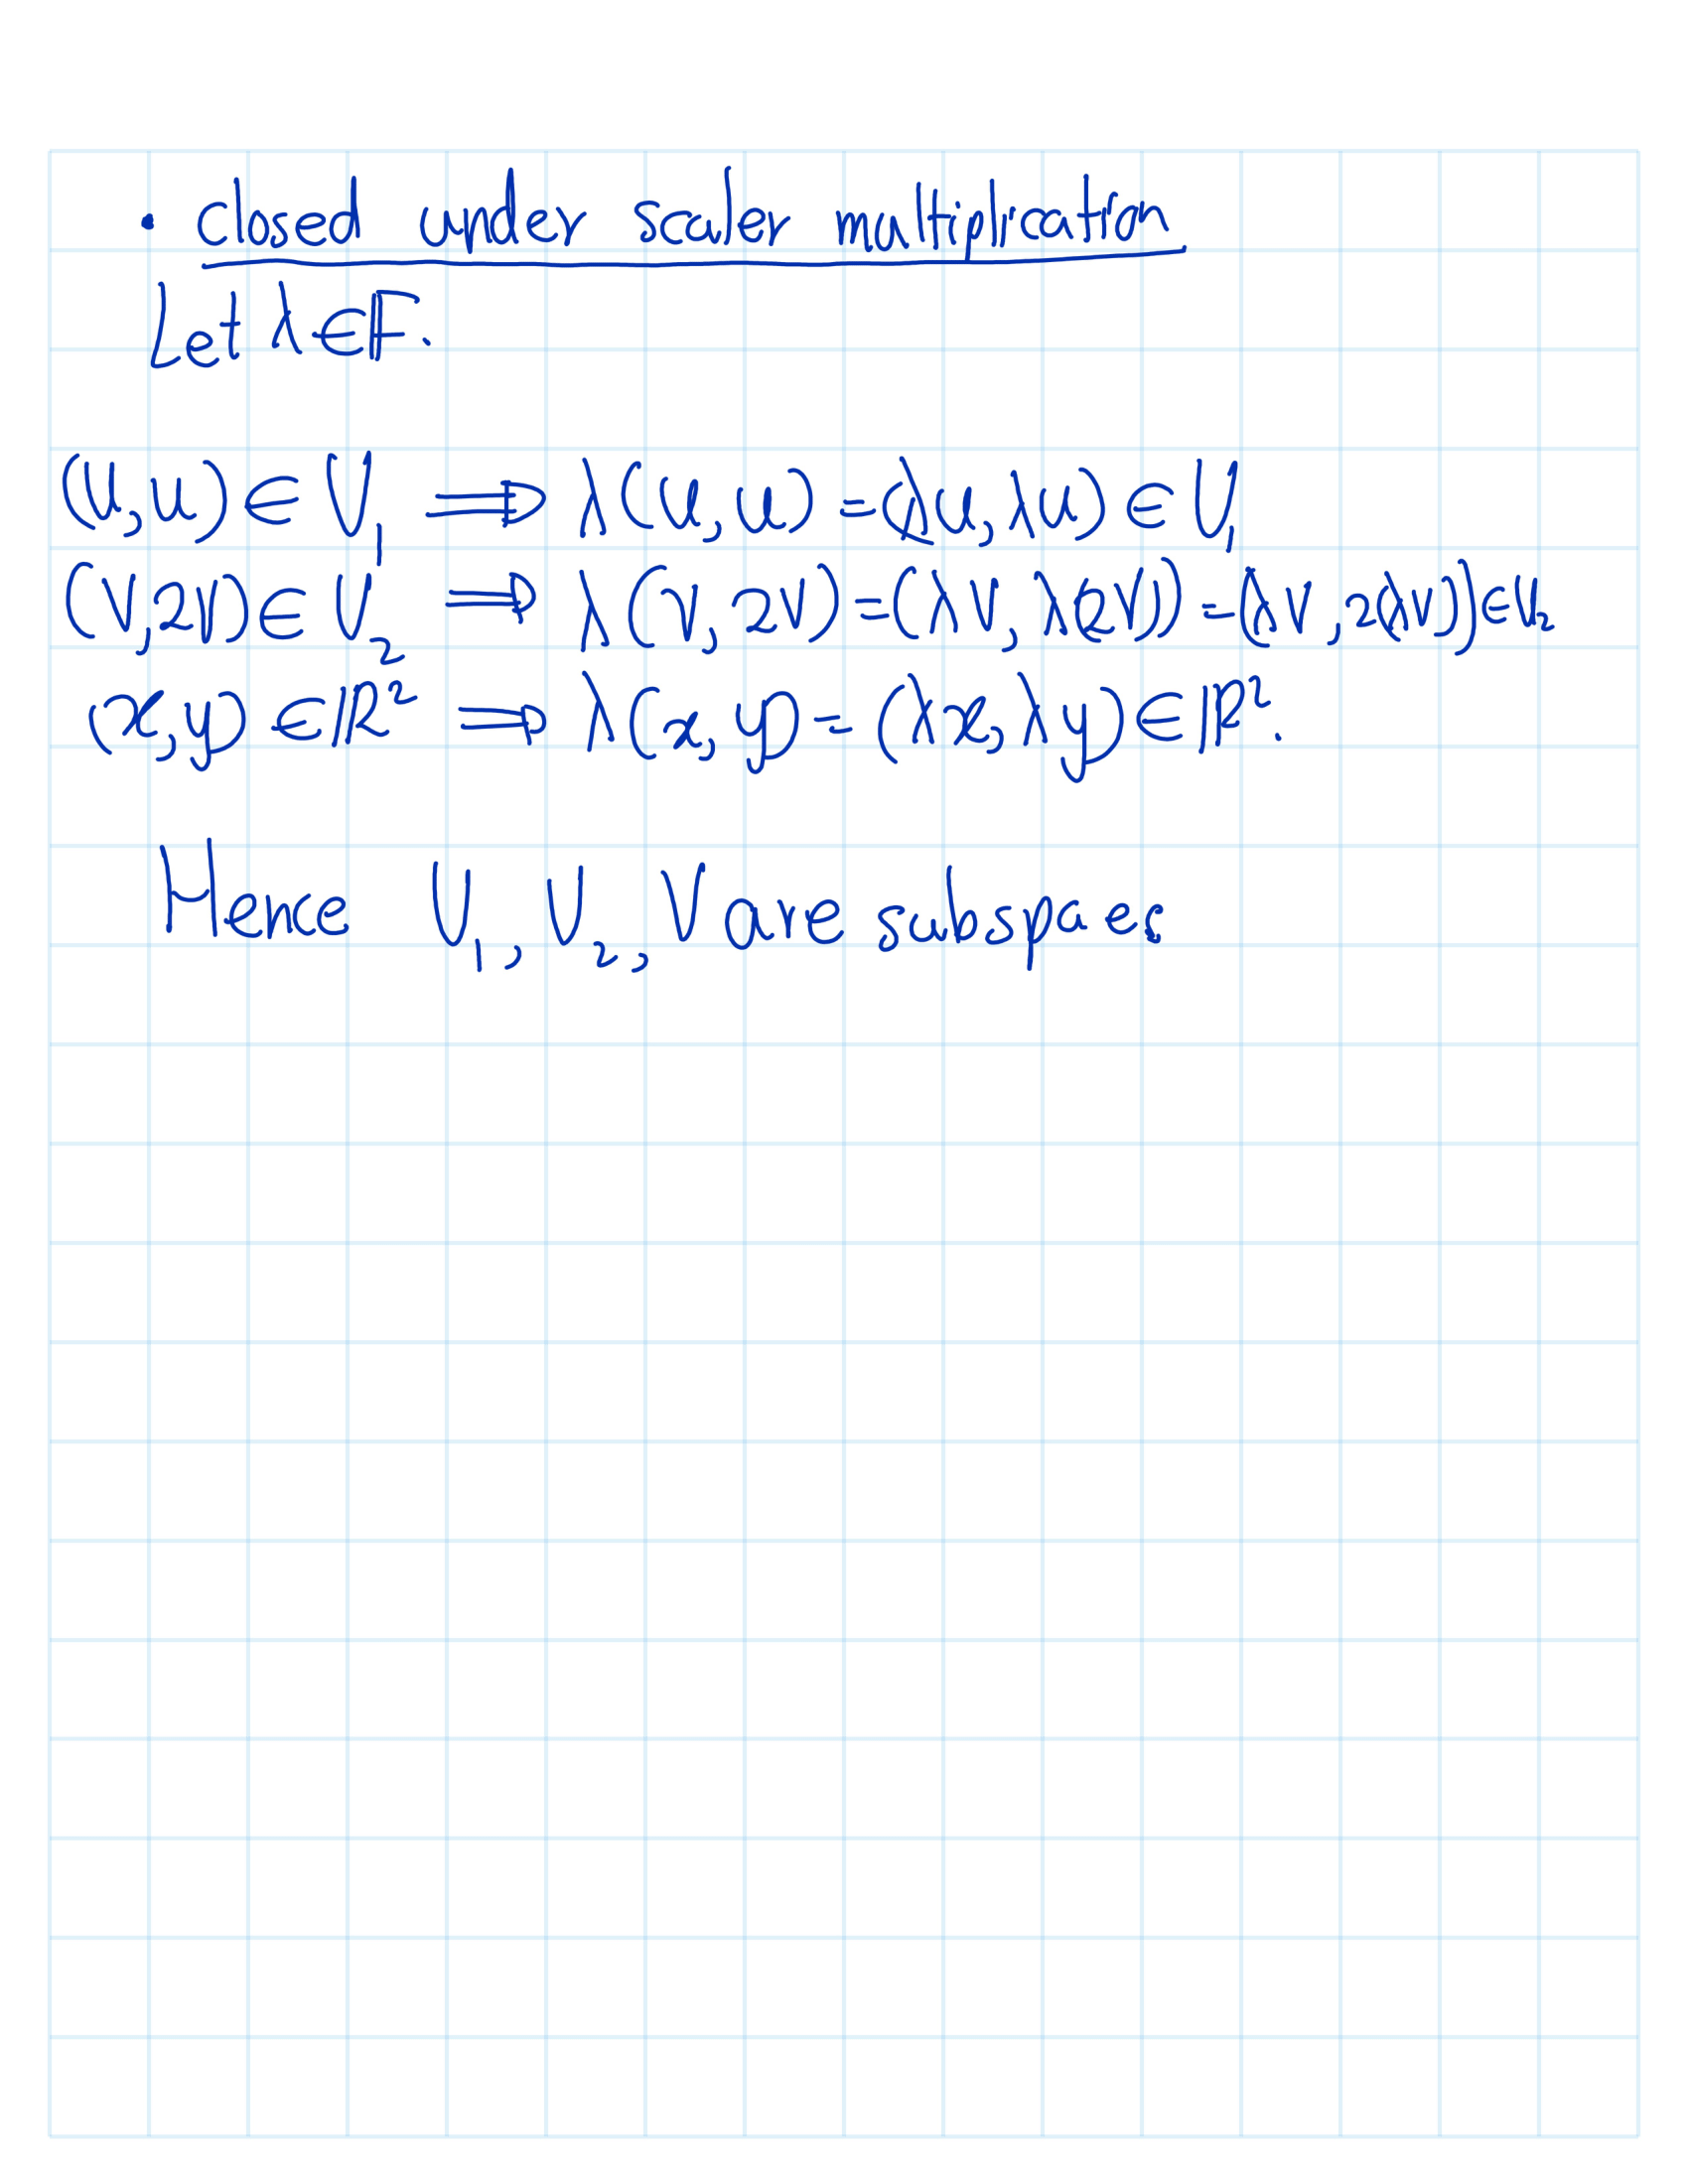 • closed under scaler multiplication
Let λ∈𝔽.
(u,u)∈U₁ ⇒ λ(u,u)=(λu,λu)∈U₁
(v,2v)∈U₂ ⇒ λ(v,2v)=(λv,λ(2v))=(λv,2(λv))∈U₂
(x,y)∈ℝ² ⇒ λ(x,y)=(λx,λy)∈ℝ².
Hence U₁,U₂,V are subspaces